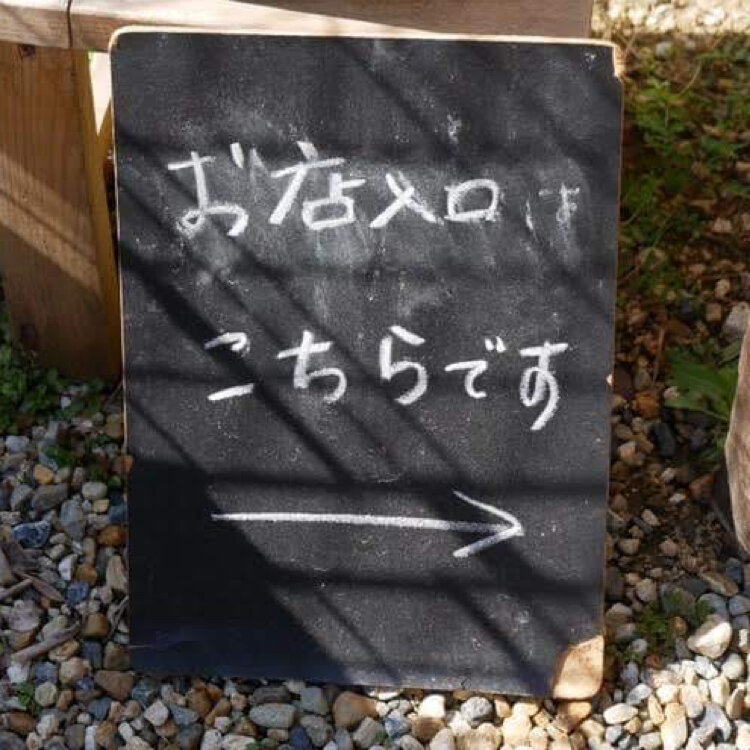 お店入口は
こちらです
→